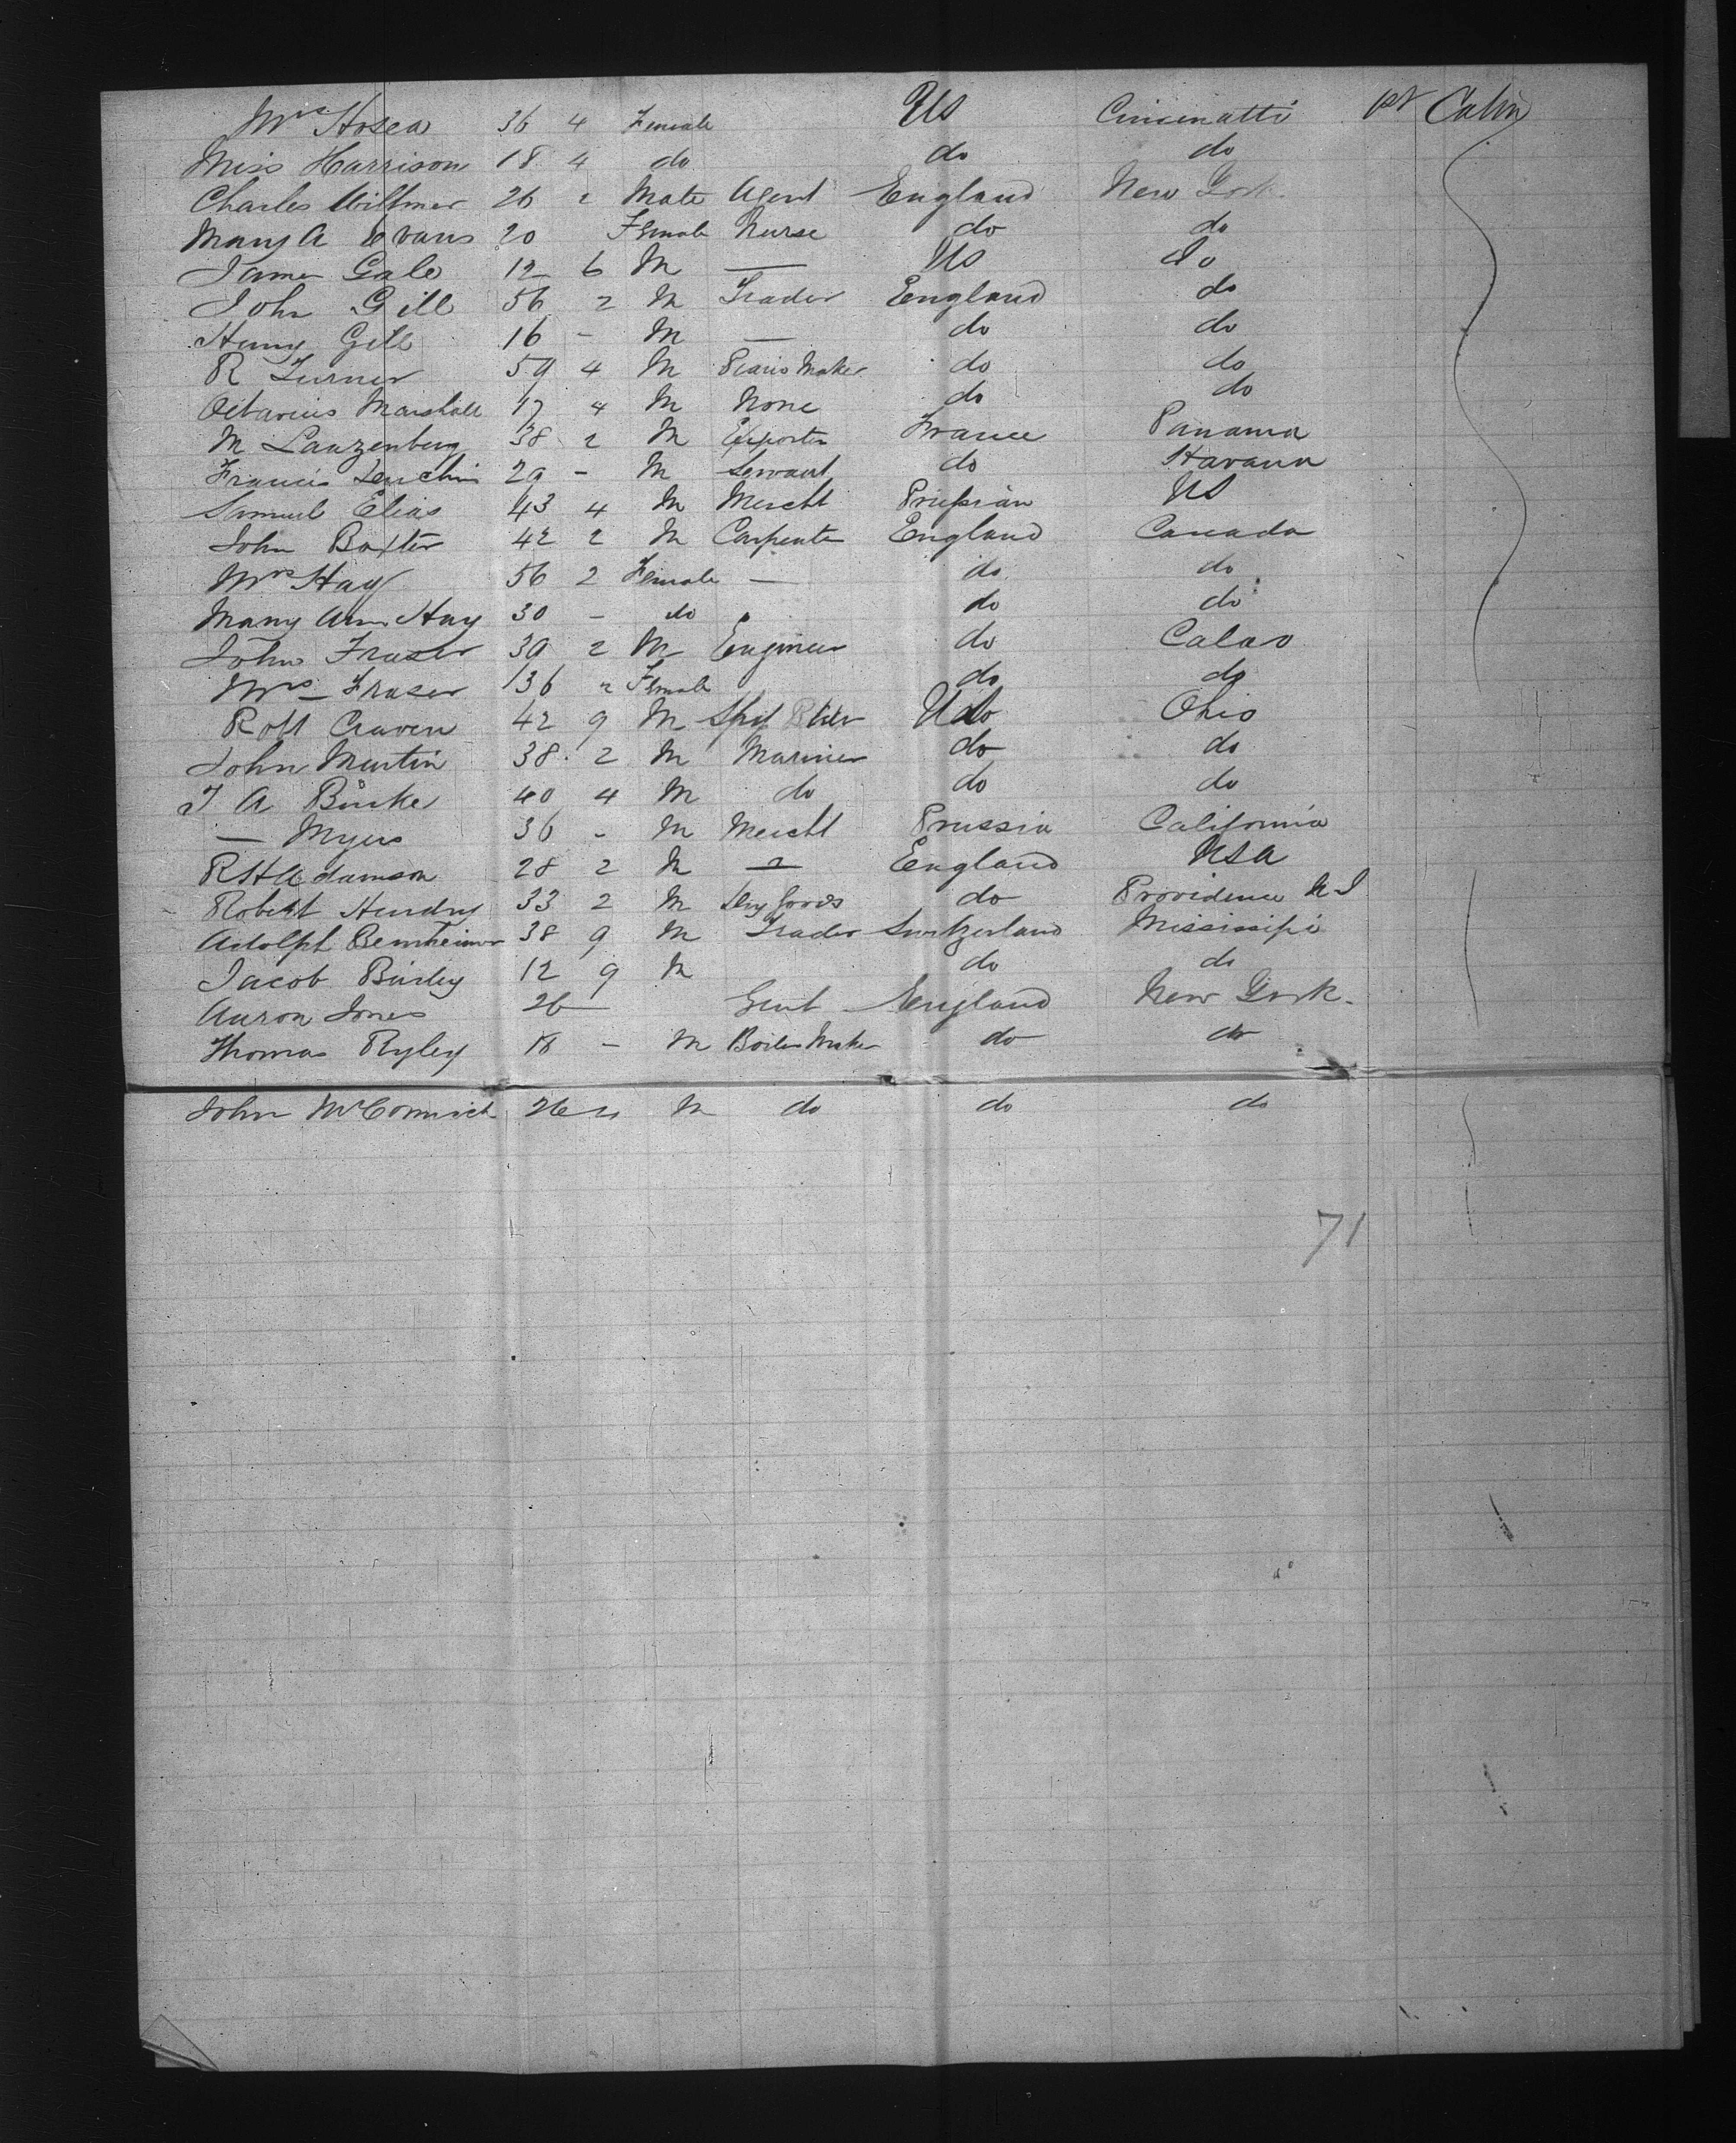 Mrs Hosea 36 4 Female US Cincinatti 1st Cabin
Miss Harrison 18 4 do do do
Charles Willmer 26 2 Male Agent England New York
Mary A Evans 20 Female Nurse do do
James Gale 12 6 M — US do
John Gill 56 2 M Trader England do
Henry Gill 16 - M — do do
R Turner 59 4 M Piano Maker do do
Octavius Marshall 17 4 M None do do
M Lanzenberg 38 2 M Exporter France Panama
Francis 29 - M Servant do Havana
Samuel Elias 43 4 M Mercht Prussian US
John Baxter 42 2 M Carpenter England Canada
Mrs Hay 56 2 Female — do do
Mary Ann Hay 30 - do do do
John Fraser 39 2 M Engineer do Calao
Mrs Fraser 36 2 Female do do
Robt Craven 42 9 M Ohio
John Martin 38 2 M Mariner do do
J A Burke 40 4 M do do do
— Myers 36 - M Mercht Prussia California
R H Adamson 28 2 M — England USA
Robert Hendry 33 2 M Dry Goods do Providence
Adolph Bernheimer 38 9 M Trader Switzerland Mississipi
Jacob 12 9 M do do
Aaron Jones 26 — Gent England New York.
Thomas Ryley 18 - M Boiler Maker do do
John McCormick 26 M do do do
71